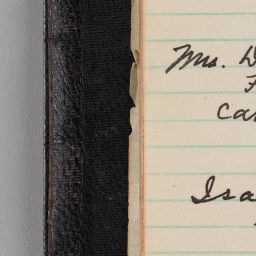 Mrs. D
F
Car
Isa